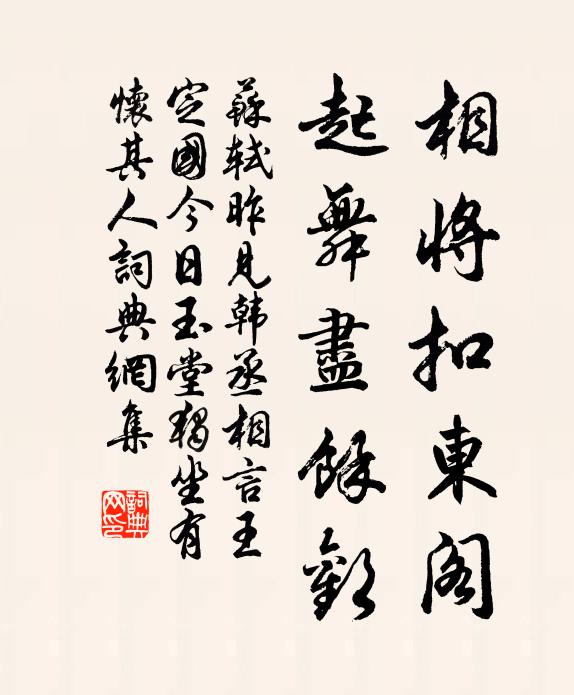 相將扣東閣
起舞盡餘歡
蘇軾昨見韓丞相言王
定國今日玉堂獨坐有
懷其人詞典網集
詞典
网印